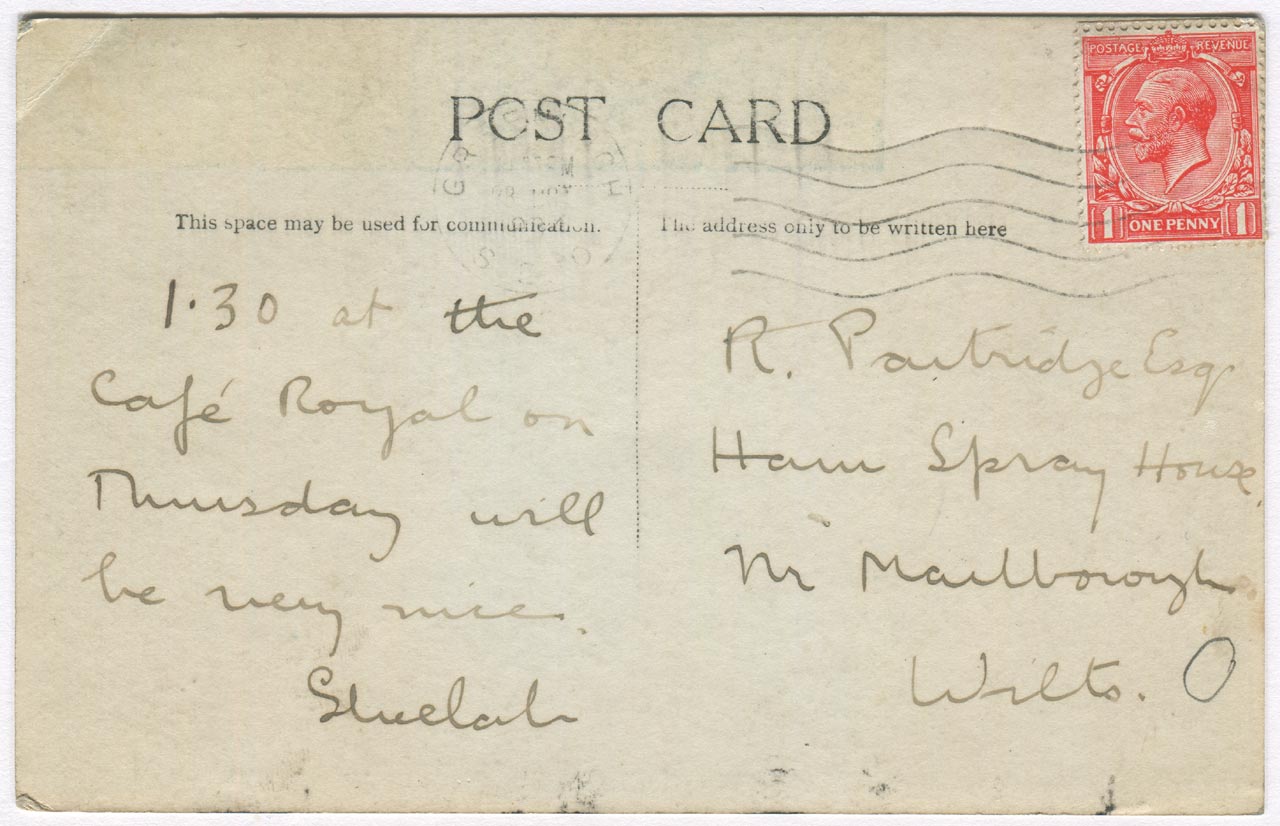 POST CARD
This space may be used for communication.
1·30 at the
Café Royal on
Thursday will
be very nice.
Shelah
The address only to be written here
POSTAGE REVENUE
1 ONE PENNY 1
R. Partridge Esq
Ham Spray House,
Nr Marlborough
Wilts.